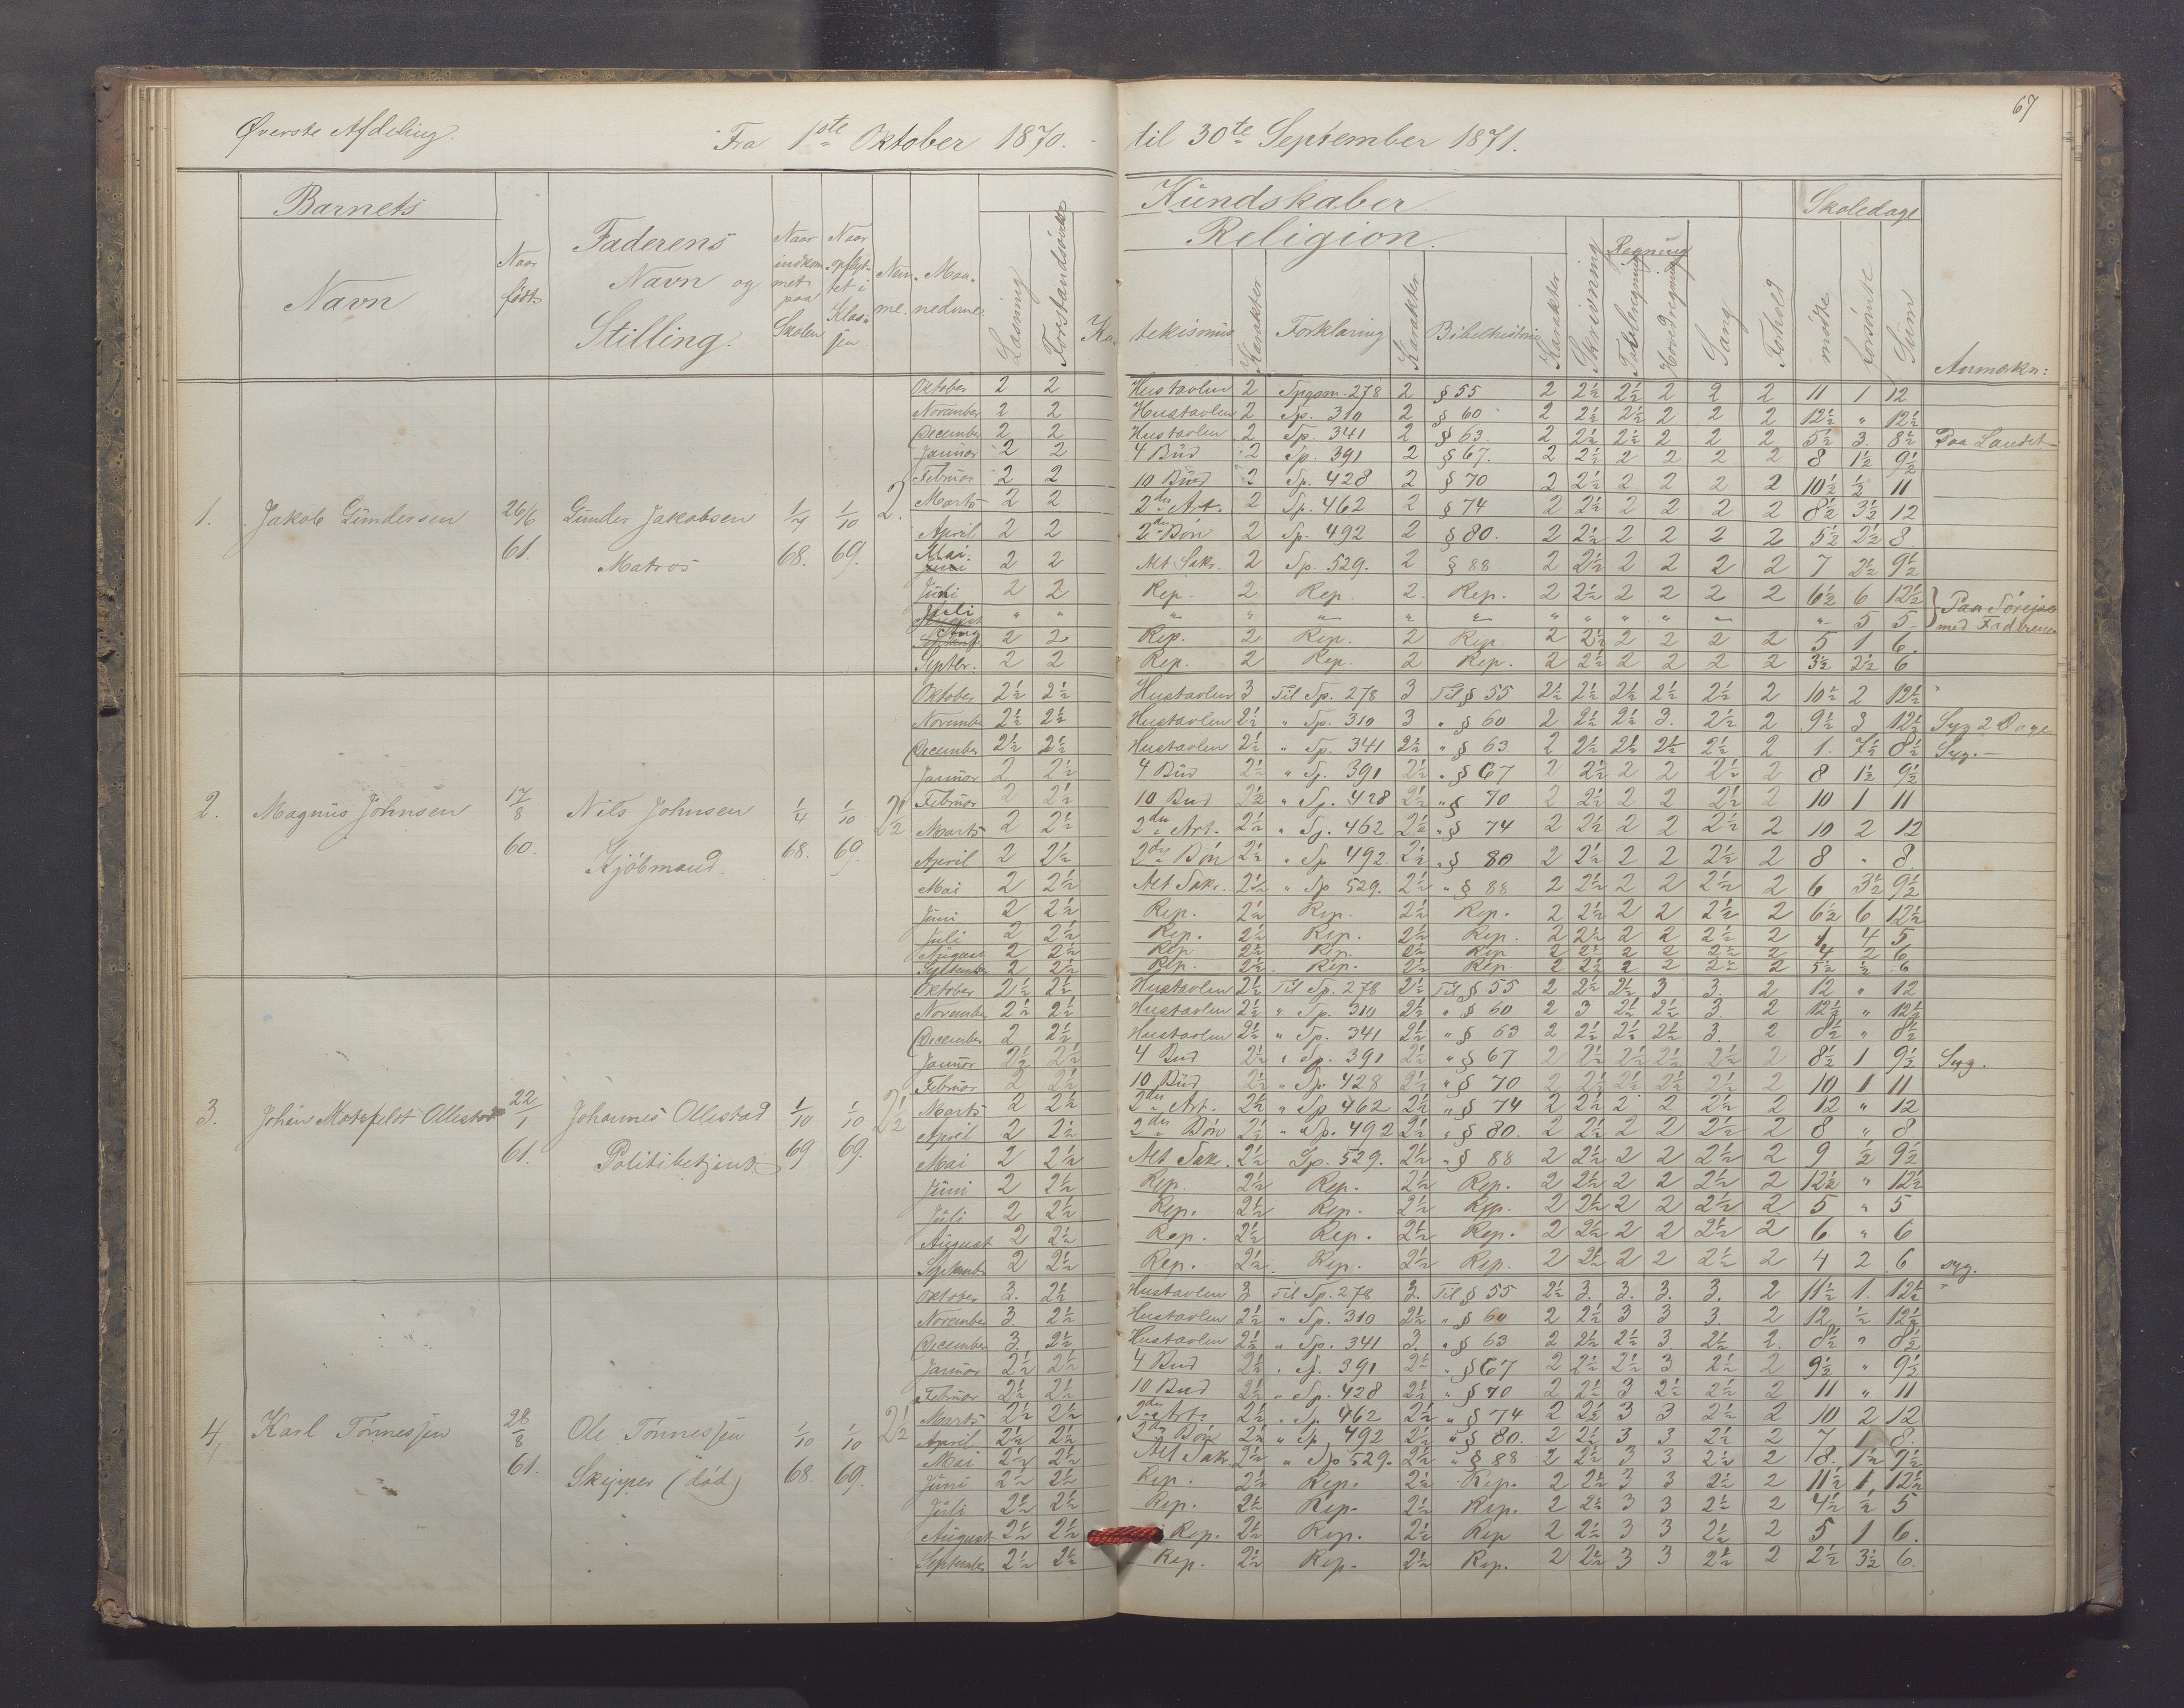 67
Øverste Afdeling. Fra 1ste Oktober 1870. - til 30te September 1871.
Barnets Kundskaber Skoledage
Religion. Regning
Navn Naar født Faderens Navn og Stilling. Naar indkommet paa Skolen Naar opflyttet i Klassen Nemme. Maanederne Læsning Forstandsøvelse Katekismus Karakter Forklaring Karakter Bibelhistorie Karakter Skrivning Tavleregning Hovedregning Sang Forhold mødte forsømte Sum Anmærkn:
1. Jakob Gundersen 26/6 61. Gunder Jakobsen Matros 1/7 68. 1/10 69. 2.
Oktober 2 2 Hustavlen 2 Spgsm. 278 2 § 55 2 2½ 2½ 2 2 2 11 1 12
November 2 2 Hustavlen 2 Sp. 310 2 § 60 2 2½ 2½ 2 2 2 12½ " 12½
December 2 2 Hustavlen 2 Sp. 341 2 § 63. 2 2½ 2½ 2 2 2 5½ 3. 8½ Paa Landet
Januar 2 2 4 Bud 2 Sp. 391 2 § 67. 2 2½ 2 2 2 2 8 1½ 9½
Februar 2 2 10 Bud 2 Sp. 428 2 § 70 2 2½ 2 2 2 2 10½ ½ 11
Marts 2 2 2den Art. 2 Sp. 462 2 § 74 2 2½ 2 2 2 2 8½ 3½ 12
April 2 2 2den Bøn 2 Sp. 492 2 § 80. 2 2½ 2 2 2 2 5½ 2½ 8
Mai. 2 2 Alt Sakr. 2 Sp. 529. 2 § 88 2 2½ 2 2 2 2 7 2½ 9½
Juni 2 2 Rep. 2 Rep. 2. Rep. 2 2½ 2 2 2 2 6½ 6 12½ Paa Søreise
Juli " " " " " " " " " " " " " 5 5 med Faderen
Aug 2 2 Rep. 2 Rep. 2 Rep 2 2½ 2 2 2 2 5 1 6.
Septbr. 2 2 Rep. 2 Rep. 2 Rep. 2 2½ 2 2 2 2 3½ 2½ 6
2. Magnus Johnsen 17/8 60. Nils Johnsen Kjøbmand. 1/4 68. 1/10 69. 2½
Oktober 2½ 2½ Hustavlen 3 Til Sp. 278 3 Til § 55 2½ 2½ 2½ 2½ 2½ 2 10½ 2 12½
November 2½ 2½ Hustavlen 2½ " Sp. 310 3 " § 60 2 2½ 2½ 3. 2½ 2 9½ 3 12½ Syg 2 Dage
December 2½ 2½ Hustavlen 2½ " Sp. 341 2½ " § 63 2 2½ 2½ 2½ 2½ 2 1. 7½ 8½ Syg. -
Januar 2 2½ 4 Bud 2½ " Sp. 391 2½ " § 67 2 2½ 2 2 2½ 2 8 1½ 9½
Februar 2 2½ 10 Bud 2½ " Sp. 428 2½ " § 70 2 2½ 2 2 2½ 2 10 1 11
Marts 2 2½ 2den Art. 2½ " Sp. 462 2½ " § 74 2 2½ 2 2 2½ 2 10 2 12
April 2 2½ 2den Bøn 2½ " Sp 492. 2½ " § 80 2 2½ 2 2 2½ 2 8 " 8
Mai 2 2½ Alt Sakr. 2½ " Sp 529. 2½ " § 88 2 2½ 2 2 2½ 2 6 3½ 9½
Juni 2 2½ Rep. 2½ Rep. 2½ Rep. 2 2½ 2 2 2½ 2 6½ 6 12½
Juli 2 2½ Rep. 2½ Rep. 2½ Rep. 2 2½ 2 2 2½ 2 1 4 5
August 2 2½ Rep 2½ Rep. 2½ Rep 2 2½ 2 2 2½ 2 4 2 6
September 2 2½ Rep. 2½ Rep. 2½ Rep 2 2½ 2 2 2½ 2 5½ ½ 6
3. Johan Motzfeldt Ollestad 22/1 61. Johannes Ollestad Politibetjent 1/10 69 1/10 69. 2½
Oktober 2½ 2½ Hustavlen 2½ Til Sp. 278 2½ Til § 55 2 2½ 2½ 3 3. 2 12 " 12
November 2½ 2½ Hustavlen 2½ " Sp. 310 2½ " § 60 2 3 2½ 2½ 3. 2 12½ " 12½
December 2 2½ Hustavlen 2½ " Sp. 341 2½ " § 63 2 2½ 2½ 2½ 3. 2 8½ " 8½
Januar 2½ 2½ 4 Bud 2½ " Sp. 391 2½ " § 67 2 2½ 2½ 2½ 2½ 2 8½ 1 9½ Syg.
Februar 2 2½ 10 Bud 2½ " Sp. 428 2½ " § 70 2 2½ 2½ 2½ 2½ 2 10 1 11
Marts 2 2½ 2den Art. 2½ " Sp 462 2½ " § 74 2 2½ 2 2 2½ 2 12 " 12
April 2 2½ 2den Bøn 2½ " Sp. 492 2½ " § 80. 2 2½ 2 2 2½ 2 8 " 8
Mai 2 2½ Alt Sakr. 2½ Sp. 529. 2½ " § 88 2 2½ 2 2 2½ 2 9 ½ 9½
Juni 2 2½ Rep. 2½ Rep. 2½ Rep. 2 2½ 2 2 2½ 2 12½ " 12½
Juli 2 2½ Rep. 2½ Rep. 2½ Rep. 2 2½ 2 2 2½ 2 5 " 5
August 2 2½ Rep. 2½ Rep. 2½ Rep. 2 2½ 2 2 2½ 2 6 " 6
Septemb. 2 2½ Rep. 2½ Rep. 2½ Rep. 2 2½ 2 2 2½ 2 4 2 6. syg.
4, Karl Tønnessen 28/8 61. Ole Tønnessen Skipper (død) 1/10 68 1/10 69. 2½
Oktober 3. 2½ Hustavlen 3 Til Sp. 278 3. Til § 55 2½ 3. 3. 3. 3. 2 11½ 1. 12½
November 3. 2½ Hustavlen 2½ " Sp. 310 2½ " § 60 2 2½ 3 3 3. 2 12 ½ 12½
December 3. 2½ Hustavlen 2½ " Sp. 341 3. " § 63 2 2½ 2½ 3 2½ 2. 8½ " 8½
Januar 2½ 2½ 4 Bud 2½ " Sp. 391 2½ " § 67 2 2½ 2½ 3 2½ 2 9½ " 9½
Februar 2½ 2½ 10 Bud 2½ " Sp. 428 2½ " § 70 2 2½ 3 2½ 2½ 2 11 " 11
Marts 2½ 2½ 2den Art. 2½ " Sp. 462 2½ " § 74 2 2½ 3 3 2½ 2 10 2 12
April 2½ 2½ 2den Bøn 2½ " Sp. 492 2½ " § 80. 2 2½ 3 3 2½ 2 7 1 8.
Mai 2½ 2½ Alt Sakr. 2½ " Sp 529. 2½ " § 88 2 2½ 3 3 2½ 2 8. 1½ 9½
Juni 2½ 2½ Rep. 2½ Rep. 2½ Rep. 2 2½ 3 3 2½ 2 11½ 1, 12½
Juli 2½ 2½ Rep. 2½ Rep. 2½ Rep. 2 2½ 3 3 2½ 2 4½ ½ 5
August 2½ 2½ Rep. 2½ Rep. 2½ Rep 2 2½ 3 3 2½ 2 5 1 6.
September 2½ 2½ Rep. 2½ Rep. 2½ Rep. 2 2½ 3 3 2½ 2 2½ 3½ 6.